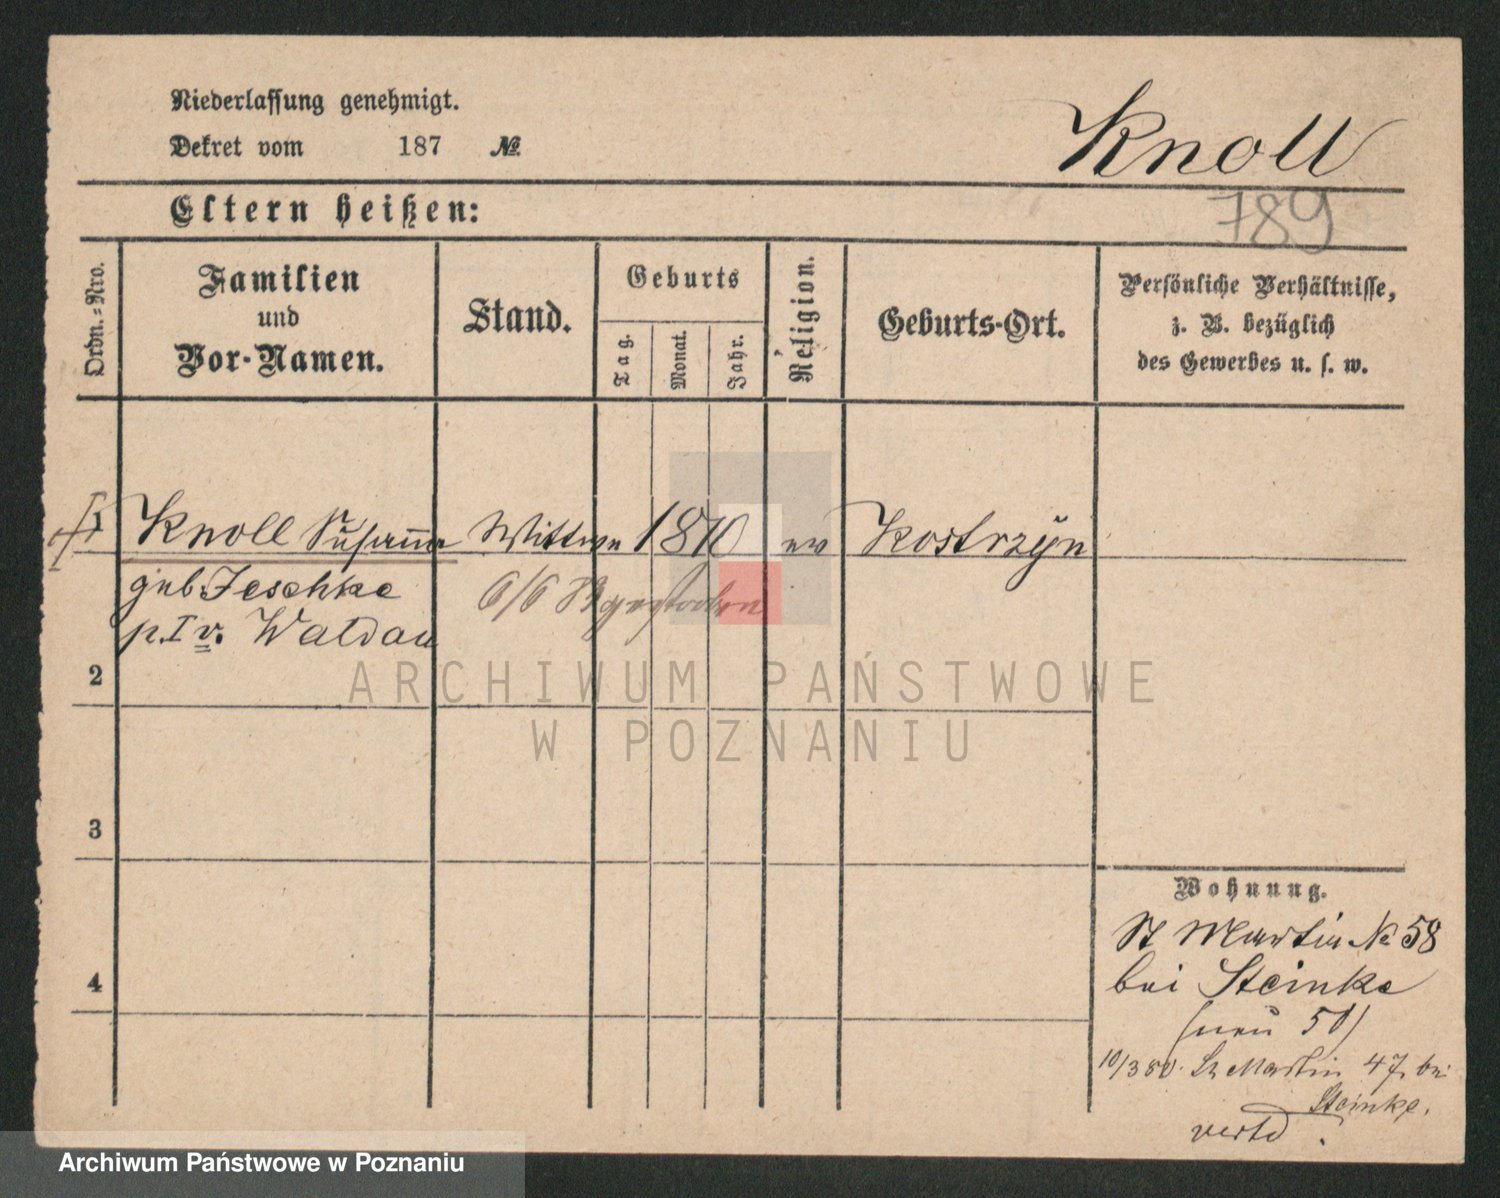 Niederlassung genehmigt.
Dekret vom 187 №
Knoll
789
Eltern heißen:
Ordn.-Nro.
Familien
und
Vor-Namen.
Stand.
Geburts
Tag.
Monat.
Jahr.
Religion.
Geburts-Ort.
Persönliche Verhältnisse,
z. B. bezüglich
des Gewerbes u. s. w.
1 Knoll Susanna Wittwe 1810 ev Kostrzyn
geb. Jeschke
6/6 gestorben
p. I v. Waldau
2
ARCHIWUM PAŃSTWOWE
W POZNANIU
3
Wohnung.
St Martin № 58
4
bei Steinke
(neu 50)
10/3 80. St Martin 47. bei
Steinke.
Archiwum Państwowe w Poznaniu